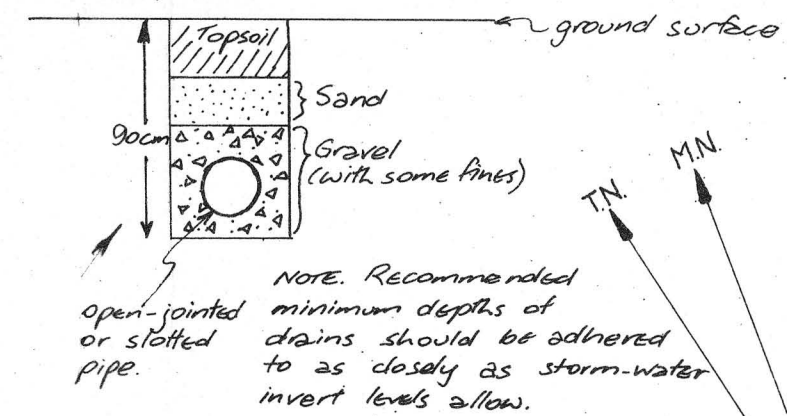 Topsoil
ground surface
Sand
90cm
Gravel
(with some fines)
M.N.
T.N.
open-jointed
or slotted
pipe.
NOTE. Recommended
minimum depths of
drains should be adhered
to as closely as storm-water
invert levels allow.